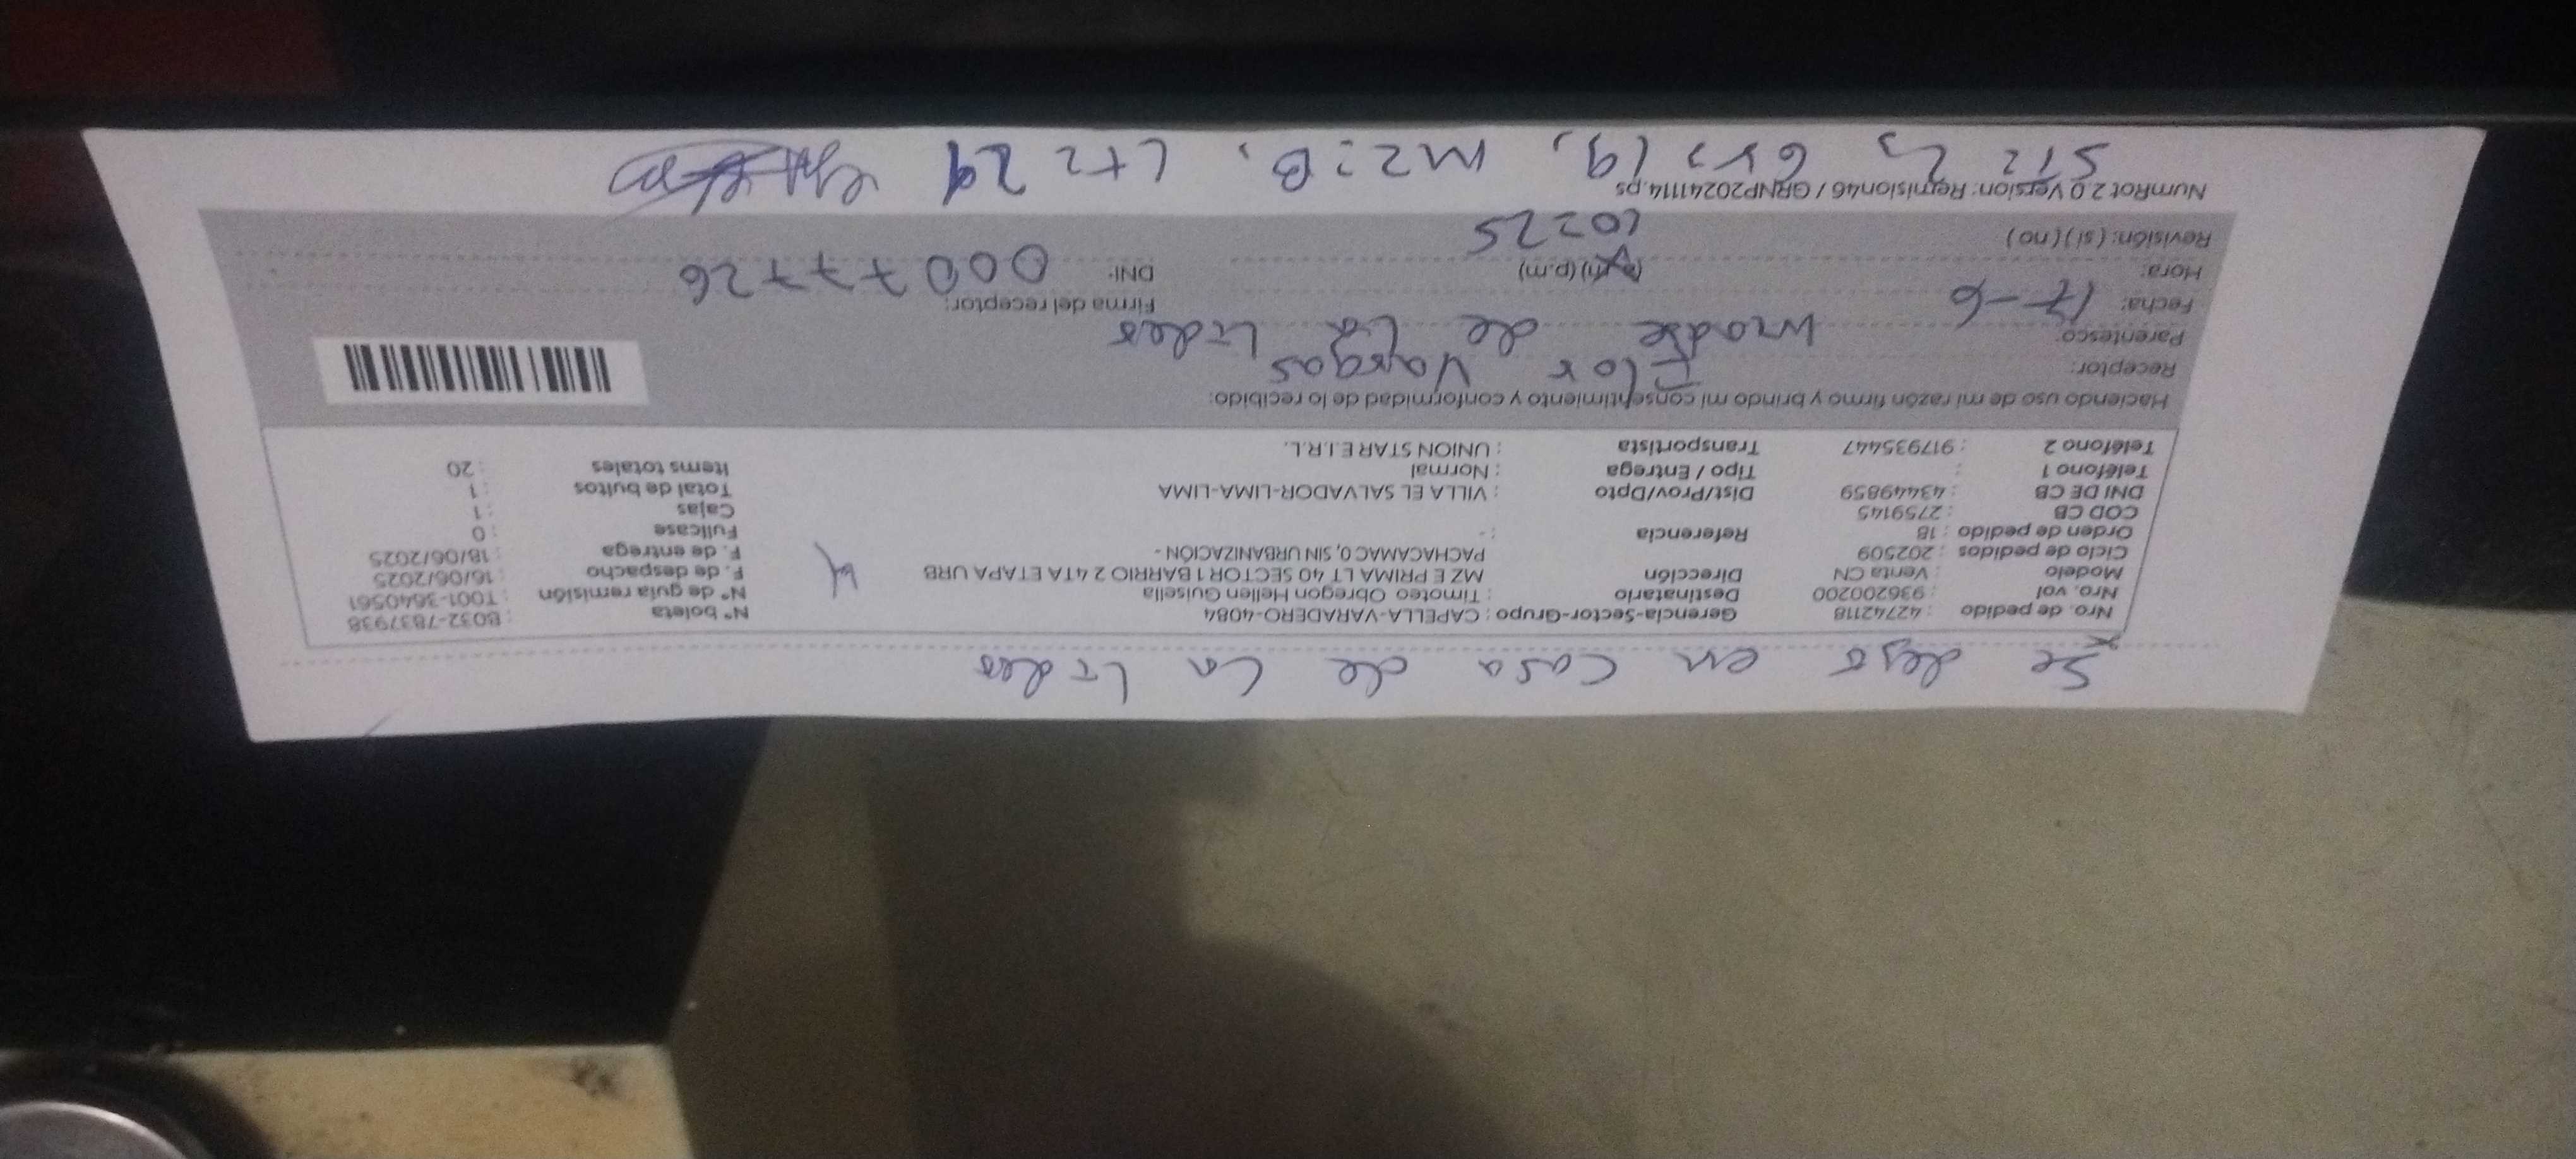 Se dejo en casa de La Lider
Nro. de pedido : 42742118
Nro. vol : 936200200
Modelo : Venta CN
Ciclo de pedidos : 202509
Orden de pedido : 18
COD CB : 2759145
DNI DE CB : 43449859
Teléfono 1 :
Teléfono 2 : 917935447
Gerencia-Sector-Grupo : CAPELLA-VARADERO-4084
Destinatario : Timoteo Obregon Hellen Guisella
Dirección MZ E PRIMA LT 40 SECTOR 1 BARRIO 2 4TA ETAPA URB
PACHACAMAC 0, SIN URBANIZACIÓN -
Referencia : -
Dist/Prov/Dpto : VILLA EL SALVADOR-LIMA-LIMA
Tipo / Entrega : Normal
Transportista : UNION STAR E.I.R.L.
N° boleta : B032-7837938
N° de guía remisión : T001-3640561
F. de despacho : 16/06/2025
F. de entrega : 18/06/2025
Fullcase : 0
Cajas : 1
Total de bultos : 1
Items totales : 20
Haciendo uso de mi razón firmo y brindo mi consentimiento y conformidad de lo recibido:
Receptor: Flor Vargas
Parentesco: madre de La Lider
Fecha: 17-6
Hora: (a.m) (p.m) 10:25
Revisión: (si) (no)
Firma del receptor:
DNI: 00077726
NumRot 2.0 Version: Remision46 / GRNP20241114.ps
Mz: B, Lt: 29